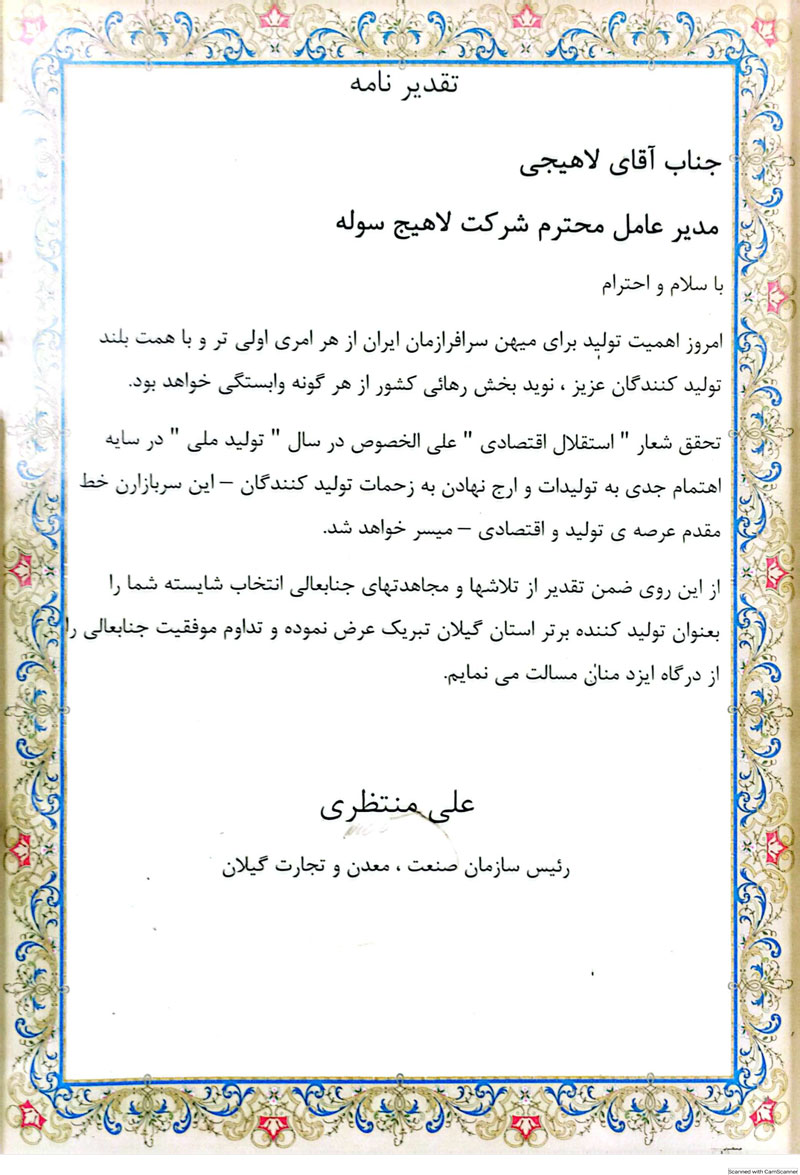 تقدیر نامه
جناب آقای لاهیجی
مدیر عامل محترم شرکت لاهیج سوله
با سلام و احترام
امروز اهمیت تولید برای میهن سرافرازمان ایران از هر امری اولی تر و با همت بلند
تولید کنندگان عزیز ، نوید بخش رهائی کشور از هر گونه وابستگی خواهد بود.
تحقق شعار " استقلال اقتصادی " علی الخصوص در سال " تولید ملی " در سایه
اهتمام جدی به تولیدات و ارج نهادن به زحمات تولید کنندگان – این سربازارن خط
مقدم عرصه ی تولید و اقتصادی – میسر خواهد شد.
از این روی ضمن تقدیر از تلاشها و مجاهدتهای جنابعالی انتخاب شایسته شما را
بعنوان تولید کننده برتر استان گیلان تبریک عرض نموده و تداوم موفقیت جنابعالی را
از درگاه ایزد منان مسالت می نمایم.
علی منتظری
رئیس سازمان صنعت ، معدن و تجارت گیلان
Scanned with CamScanner